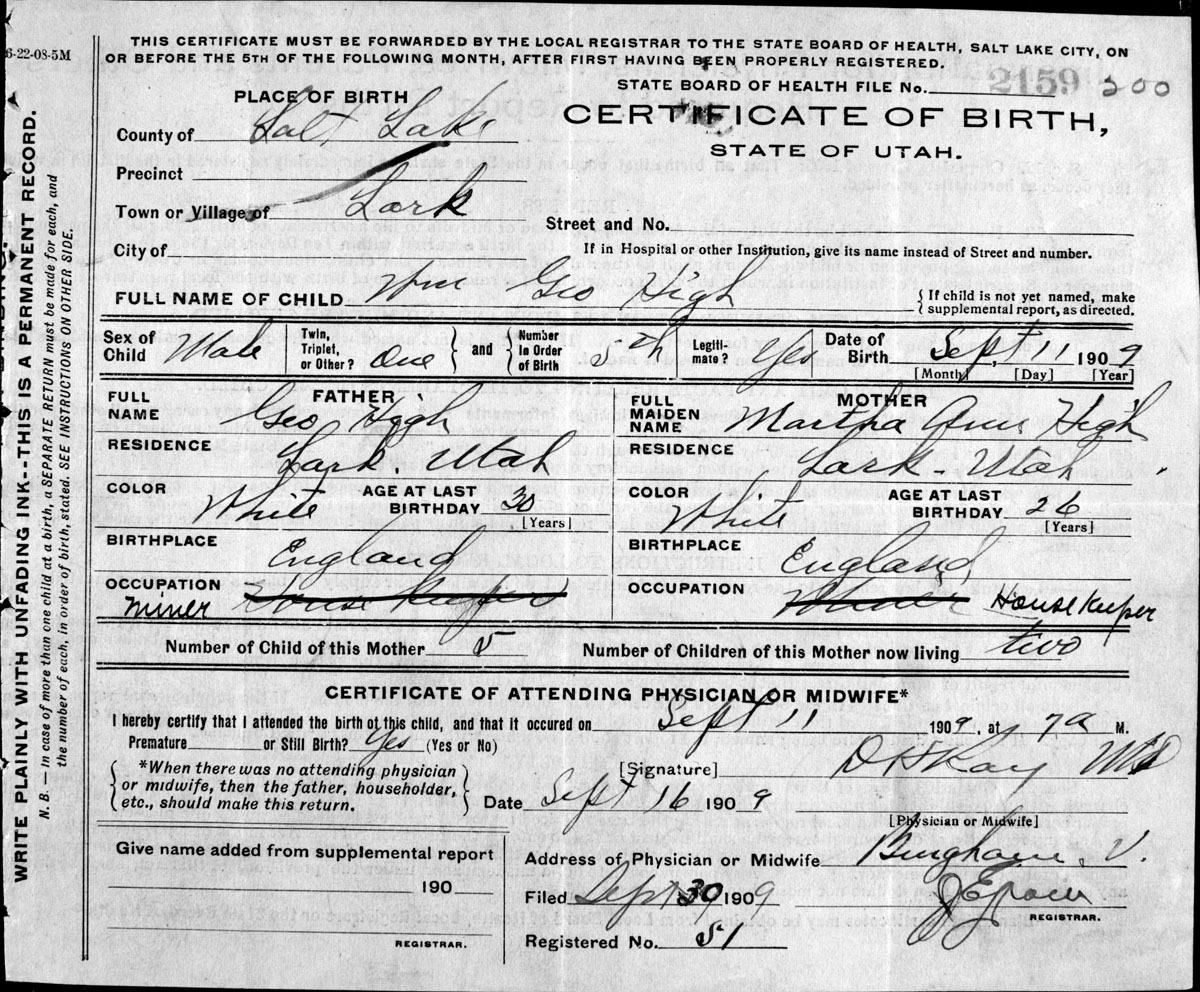 6-22-08-5M
THIS CERTIFICATE MUST BE FORWARDED BY THE LOCAL REGISTRAR TO THE STATE BOARD OF HEALTH, SALT LAKE CITY, ON
OR BEFORE THE 5TH OF THE FOLLOWING MONTH, AFTER FIRST HAVING BEEN PROPERLY REGISTERED.
STATE BOARD OF HEALTH FILE No. 2159 200
CERTIFICATE OF BIRTH,
STATE OF UTAH.
PLACE OF BIRTH
County of Salt Lake
Precinct
Town or Village of Lark
Street and No.
City of
If in Hospital or other Institution, give its name instead of Street and number.
FULL NAME OF CHILD Wm Geo High
{ If child is not yet named, make
supplemental report, as directed.
Sex of Child Male
Twin, Triplet, or Other? One } and { Number in Order of Birth 5th
Legiti-mate? Yes
Date of Birth Sept 11 1909
[Month] [Day] [Year]
FATHER
FULL NAME Geo High
RESIDENCE Lark. Utah
COLOR White AGE AT LAST BIRTHDAY 30
[Years]
BIRTHPLACE England
OCCUPATION Miner House Keeper
MOTHER
FULL MAIDEN NAME Martha Ann High
RESIDENCE Lark Utah
COLOR White AGE AT LAST BIRTHDAY 26
[Years]
BIRTHPLACE England
OCCUPATION Miner House Keeper
Number of Child of this Mother 5 Number of Children of this Mother now living two
CERTIFICATE OF ATTENDING PHYSICIAN OR MIDWIFE*
I hereby certify that I attended the birth of this child, and that it occured on Sept 11 1909, at 7 a M.
Premature or Still Birth? Yes (Yes or No)
{ *When there was no attending physician
or midwife, then the father, householder,
etc., should make this return. }
[Signature] D H Kay MD
Date Sept 16 1909
[Physician or Midwife]
Give name added from supplemental report
190
REGISTRAR.
Address of Physician or Midwife Bingham, U.
Filed Sept 30 1909
REGISTRAR.
Registered No. 51
WRITE PLAINLY WITH UNFADING INK--THIS IS A PERMANENT RECORD.
N. B. — In case of more than one child at a birth, a SEPARATE RETURN must be made for each, and
the number of each, in order of birth, stated. SEE INSTRUCTIONS ON OTHER SIDE.